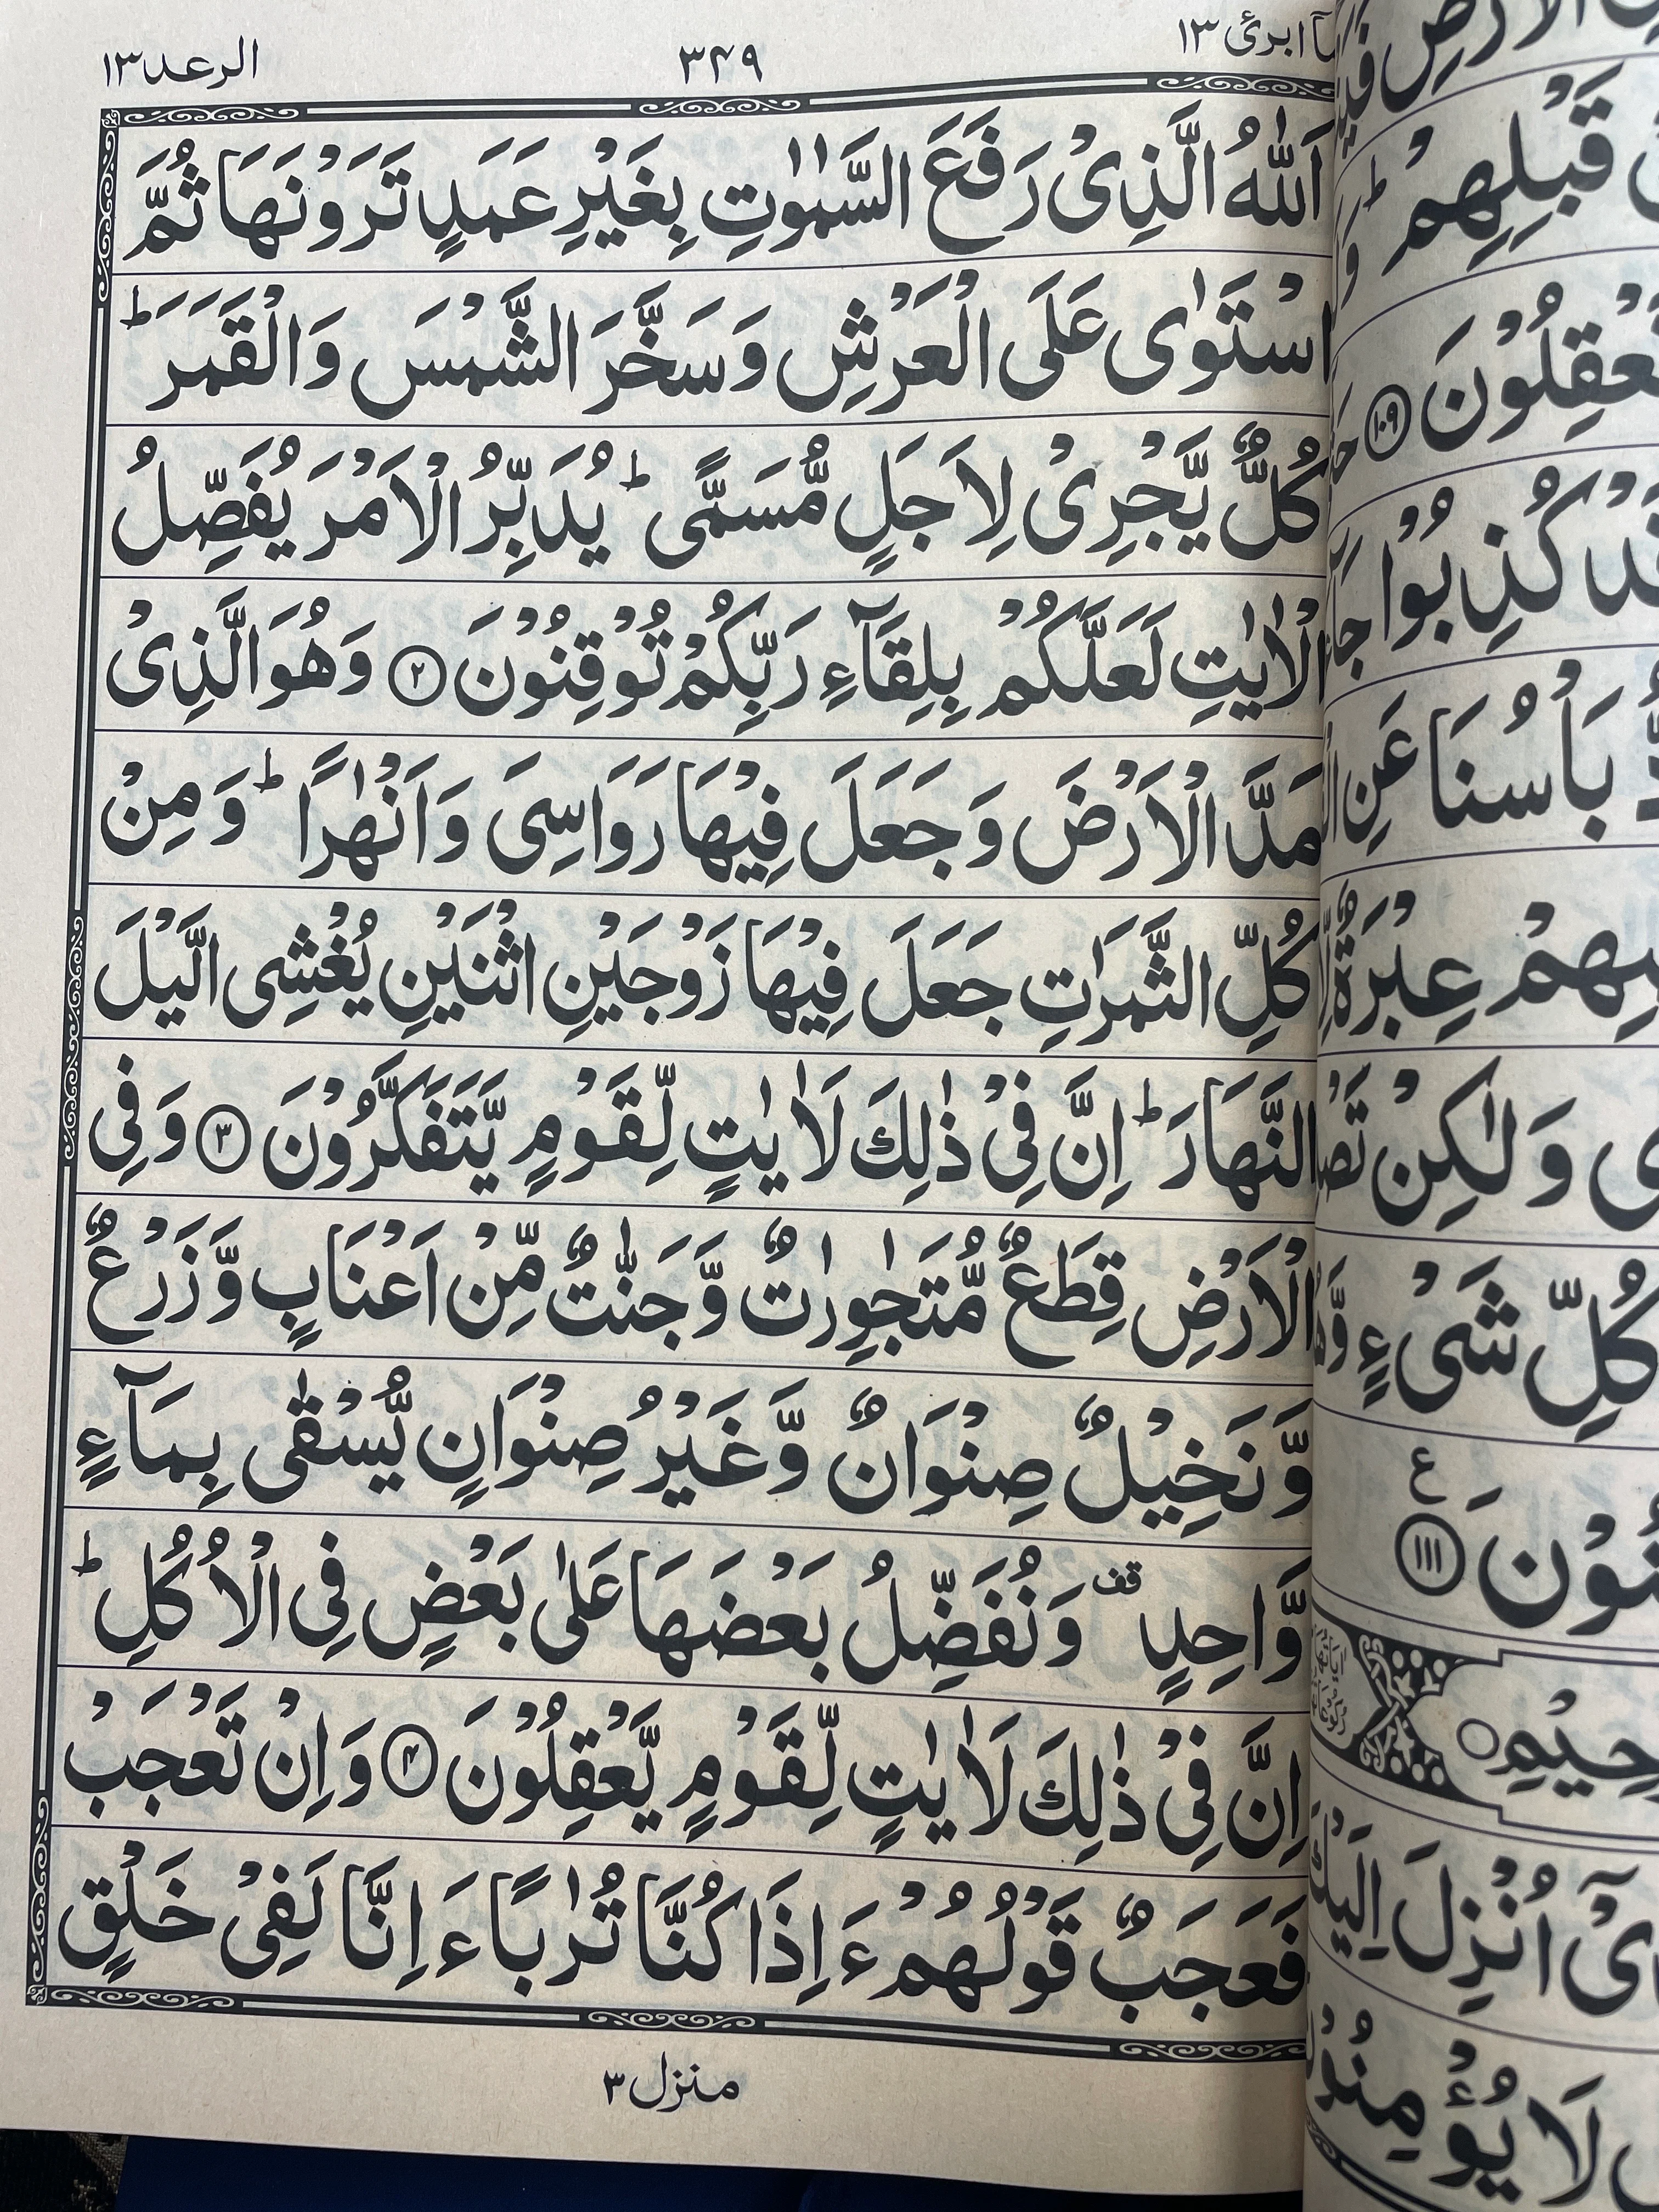 الرعد ١٣
٣٤٩
ابرئ ١٣
اَللّٰهُ الَّذِىْ رَفَعَ السَّمٰوٰتِ بِغَيْرِ عَمَدٍ تَرَوْنَهَا ثُمَّ
اسْتَوٰى عَلَى الْعَرْشِ وَسَخَّرَ الشَّمْسَ وَالْقَمَرَ ؕ
كُلٌّ يَّجْرِىْ لِاَجَلٍ مُّسَمًّى ؕ يُدَبِّرُ الْاَمْرَ يُفَصِّلُ
الْاٰيٰتِ لَعَلَّكُمْ بِلِقَآءِ رَبِّكُمْ تُوْقِنُوْنَ ۝۲ وَهُوَ الَّذِىْ
مَدَّ الْاَرْضَ وَجَعَلَ فِيْهَا رَوَاسِىَ وَاَنْهٰرًا ؕ وَمِنْ
كُلِّ الثَّمَرٰتِ جَعَلَ فِيْهَا زَوْجَيْنِ اثْنَيْنِ يُغْشِى الَّيْلَ
النَّهَارَ ؕ اِنَّ فِىْ ذٰلِكَ لَاٰيٰتٍ لِّقَوْمٍ يَّتَفَكَّرُوْنَ ۝۳ وَفِى
الْاَرْضِ قِطَعٌ مُّتَجٰوِرٰتٌ وَّجَنّٰتٌ مِّنْ اَعْنَابٍ وَّزَرْعٌ
وَّنَخِيْلٌ صِنْوَانٌ وَّغَيْرُ صِنْوَانٍ يُّسْقٰى بِمَآءٍ
وَّاحِدٍ قف وَنُفَضِّلُ بَعْضَهَا عَلٰى بَعْضٍ فِى الْاُكُلِ ؕ
اِنَّ فِىْ ذٰلِكَ لَاٰيٰتٍ لِّقَوْمٍ يَّعْقِلُوْنَ ۝۴ وَاِنْ تَعْجَبْ
فَعَجَبٌ قَوْلُهُمْ ءَاِذَا كُنَّا تُرٰبًا ءَاِنَّا لَفِىْ خَلْقٍ
منزل ٣
قَبْلِهِمْ ؕ
تَعْقِلُوْنَ ۝۱۰۹
كُذِبُوْا
بَاْسُنَا عَنِ
عِبْرَةٌ
وَلٰكِنْ
كُلِّ شَىْءٍ
ع
۝۱۱۱
اُنْزِلَ
لَا